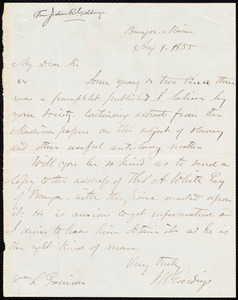 From John R Giddings
Bangor, Maine
Aug 8, 1855
My Dear Sir
Some year or two since there
was a pamphlet published I believe by
your Society, containing extracts from the
Madison papers on the subject of slavery
and other useful antislavery
matter
Will you be so kind as to send a
Copy to the address of A White Esq
of Bangor, with the price marked upon
it. He is anxious to get information and
I desire to have him He is
the right kind of man
Very truly,
J R Giddings
Wm L Garrison